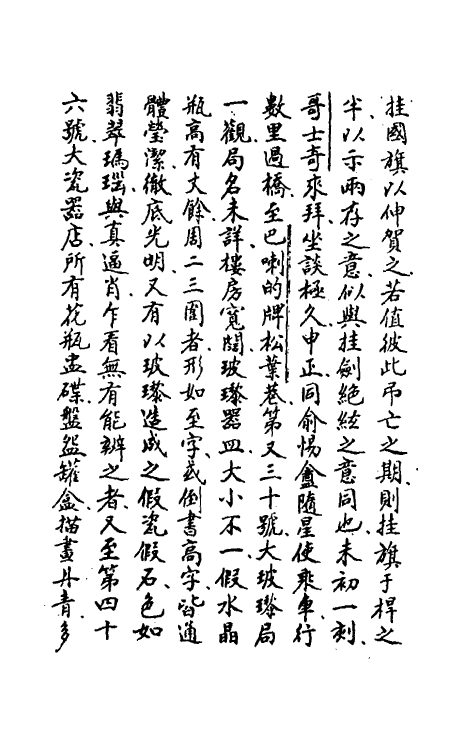 挂國旗以伸賀之若值彼此吊亡之期則挂旗于桿之
半以示兩存之意似與挂劍絕絃之意同也未初一刻
哥士奇來拜坐談極久申正同俞惕盦隨星使乘車行
數里過橋至巴喇的牌松葉巷第又三十號大玻瓈局
一觀局名未詳樓房寬闊玻瓈器皿大小不一假水晶
瓶高有丈餘周二三圍者形如至字或倒書高字皆通
體瑩潔徹底光明又有以玻瓈造成之假瓷假石色如
翡翠瑪瑙與真逼肖乍看無有能辨之者又至第四十
六號大瓷器店所有花瓶盂碟盤盌罐盒描畫丹青多